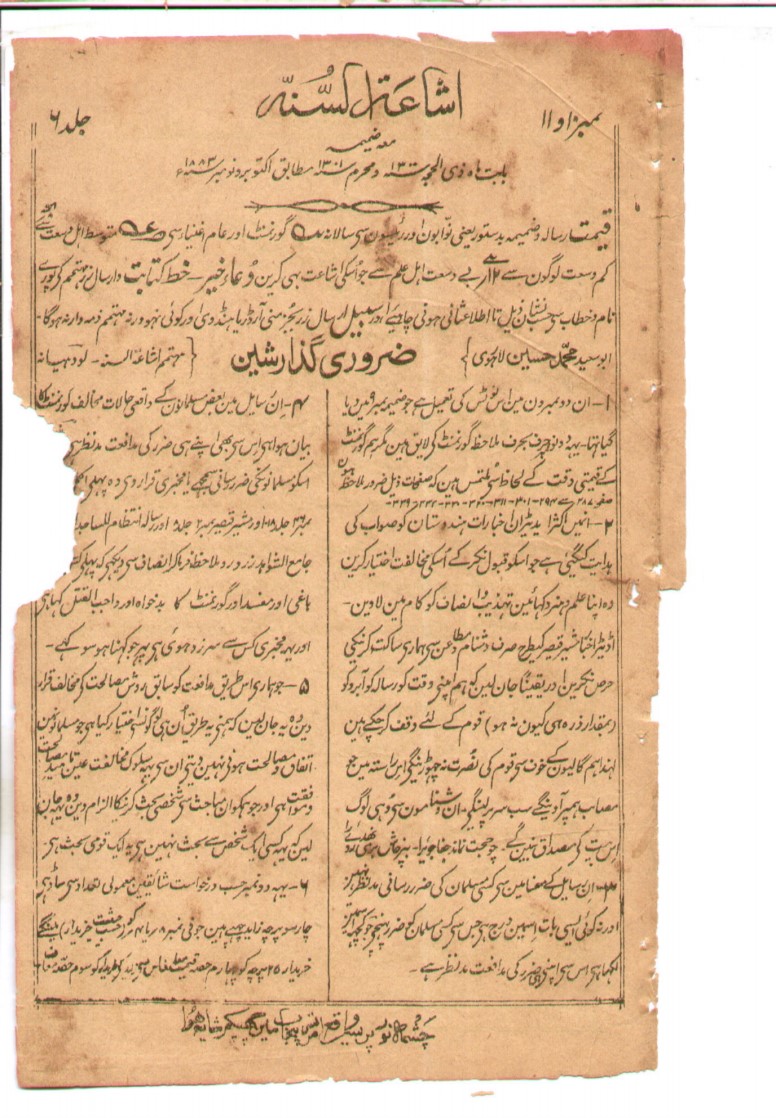 اشاعۃ السنّہ
نمبر ۱۰ و ۱۱
جلد ۶
معہ ضمیمہ
بابت ماہ ذی الحجہ ۱۳۰۰ و محرم ۱۳۰۱ مطابق اکتوبر و نومبر ۱۸۸۳ء
قیمت رسالہ و ضمیمہ بدستور یعنی نوابون اور رئیسون سی سالانہ گورنمنٹ اور عام اغنیا سی متوسط اہل وسعت سے
کم وسعت لوگون سے بے وسعت اہل علم سے جو اسکی اشاعت بھی کرین دعاءِ خیر – خط کتابت و ارسال زر مہتمم کی پورے
نام و خطاب سی حسب نشان ذیل تا اطلاع ثانی ہونی چاہیے اور سبیل ارسال زر بجز منی آرڈر یا ہنڈوی اور کوئی نہو ورنہ مہتمم ذمہ دار نہ ہوگا –
ابو سعید محمد حسین لاہوری
ضروری گذارشین
مہتمم اشاعۃ السنہ – لودہیانہ
۱ – ان دو نمبرون مین اس نوٹس کی تعمیل ہے جو ضمیمہ نمبر ۹ مین دیا
گیا تھا – یہہ دونو حرف بحرف ملاحظہ گورنمنٹ کی لایق ہین مگر ہم گورنمنٹ
کے قیمتی وقت کے لحاظ سی ملتمس ہین کہ صفحات ذیل ضرور ملاحظہ ہون
صفحہ ۲۸۷ سے ۲۹۴ – ۳۰۱ – ۳۱۱
۲ – انمین اکثر ایڈیٹران اخبارات ہندوستان کو صواب کی
ہدایت کیگئی ہے جو اسکو قبول نکر کے اسکی مخالفت اختیار کرین
وہ اپنا علم و ہنر دکہائین تہذیب و انصاف کو کام مین لاوین –
اڈیٹر اخبار مشیر قیصر کیطرح صرف دشنام و مطاعن سی ہماری ساکت کرنیکی
حرص نکرین اور یقیناً جان لین کہ ہم اپنی وقت کو رسالہ کو آبرو کو
(بمقدار ذرہ ہی کیون نہ ہو) قوم کے لئے وقف کر چکے ہین
لہذا ہم گالیون کے خوف سی قوم کی نصرت نہ چہوڑینگی اس راستہ مین جو
مصائب ہمپر آوینگے سب سر پر لینگی – ان دشنامون سی وہی لوگ
اس بیت کی مصداق بنین گے – چو حجت نماند جفا جو را – بپرخاش
۳ – ان رسایل کے مضامین سی کسی مسلمان کی ضرر رسانی مد نظر نہین
اور نہ کوئی ایسی بات اسمین درج ہی جس سی کسی مسلمان کو ضرر پہنچی جو کچہہ
لکہا ہی اس سی اپنی ہی ضرر کی مدافعت مد نظر ہے –
۴ – ان رسایل مین بعض مسلمانون کے واقعی حالات مخالف گورنمنٹ کا
بیان ہوا ہی اس سی بھی اپنے ہی ضرر کی مدافعت مد نظر ہی
اسکو مسلمانونکی ضرر رسانی سمجہے یا مخبری قرار دی وہ پہلی
نمبر جلد ۱۸ اور مشیر قیصر نمبر جلد اور رسالہ انتظام المساجد
جامع الشواہد زرورد ملاحظہ فرما کر انصاف سی دیکہی کہ پہلی
باغی اور مفسد اور گورنمنٹ کا بدخواہ اور واجب القتل کہا ہی
اور یہہ مخبری کس سے سرزد ہوئی ہی پہر جو کہنا ہو سو کہے –
۵ – جو ہماری اس طریق مدافعت کو سابق روش مصالحت کی مخالف قرار
دین وہ یہ جان لین کہ ہمنی یہ طریق ان ہی لوگونسی اختیار کیا ہی جو مسلمانونمین
اتفاق و مصالحت ہونی نہین دیتی ان سی یہ سلوک مخالفت عین تائید مصالحت
و موافقت ہی اور جو ہمکو ان مباحث سی شخصی بحث کرنیکا الزام دین وہ یہہ جان
لین کہ یہہ کسی ایک شخص سے بحث نہین ہی یہ ایک قومی بحث ہی
۶ – یہہ دو نمبر حسب درخواست شائقین معمولی تعداد سی ساڈہی
چار سو پرچہ زاید چہپے ہین جو فی نمبر ۸ ر یا ۴ ر (حسب حیثیت خریدار) ملینگے
خریدار ۲۵ پرچہ کو چہارم حصہ قیمت معاف سی کو سوم حصہ معاف